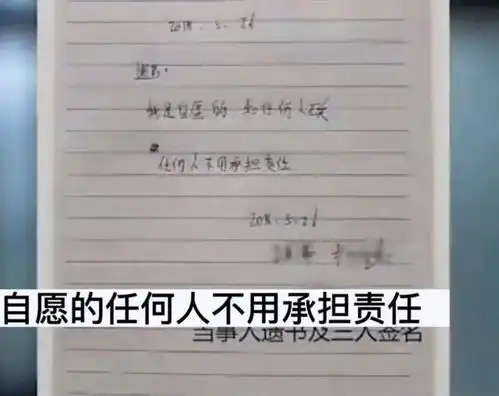 2018. 5. 26
遗书:
我是自愿的 和任何人无关
任何人不用承担责任
2018. 5. 26
自愿的任何人不用承担责任
当事人遗书及三人签名